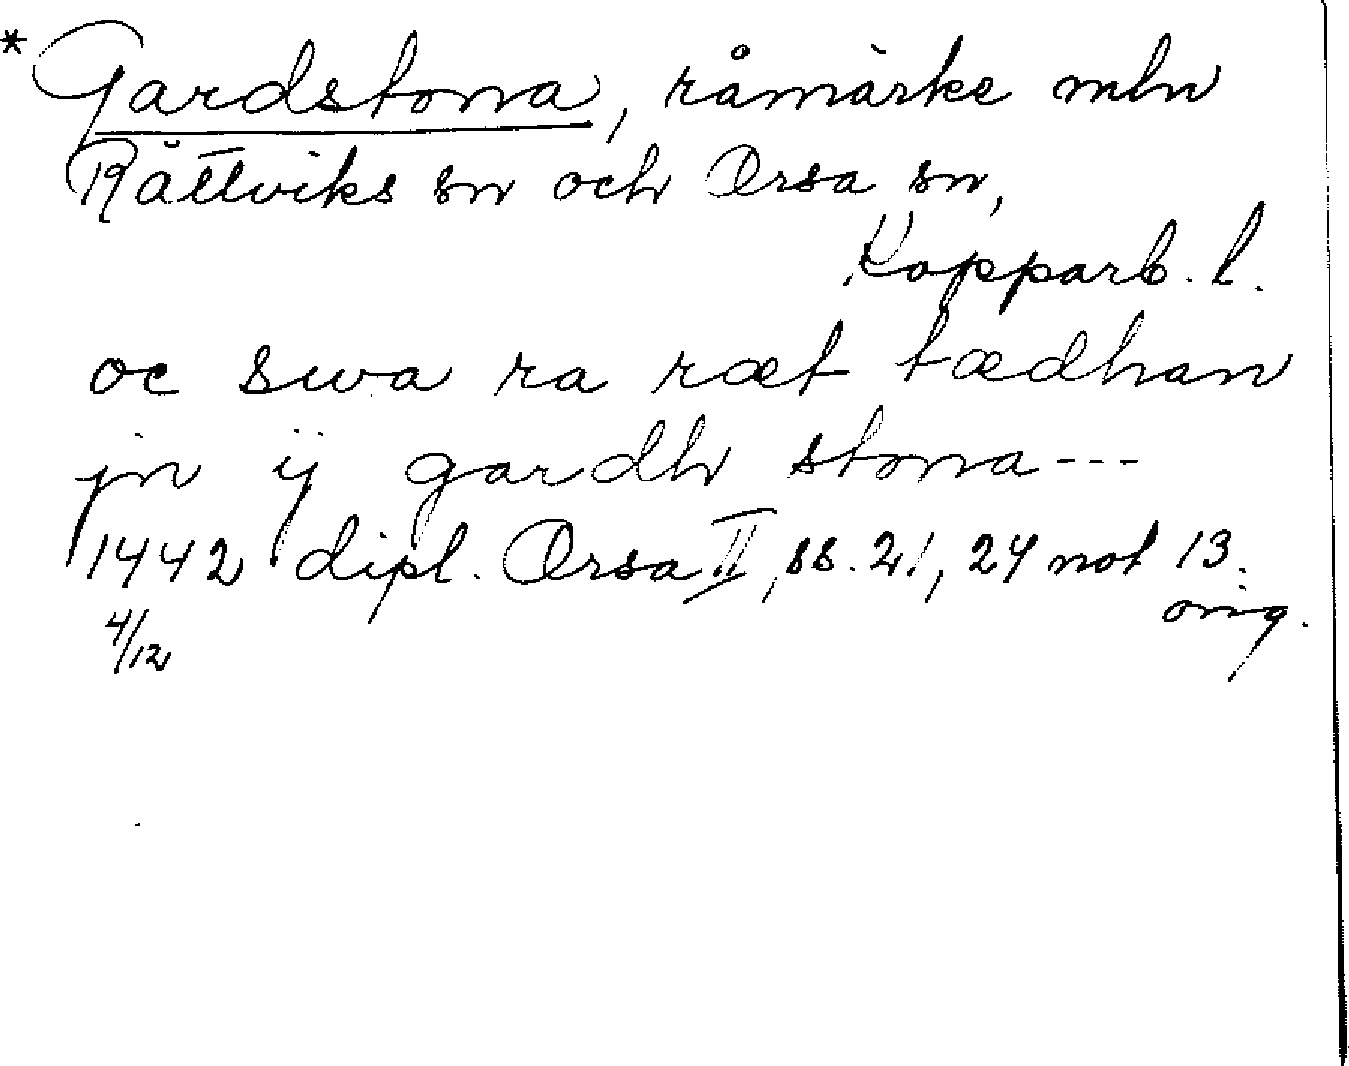 * Gardstona, råmärke mln
Rättviks sn och Orsa sn,
Kopparb. l.
oc swa ra ræt tædhan
jn ij gardh stona---
1442 dipl. Orsa II, ss. 21, 24 not 13.
orig.
4/12